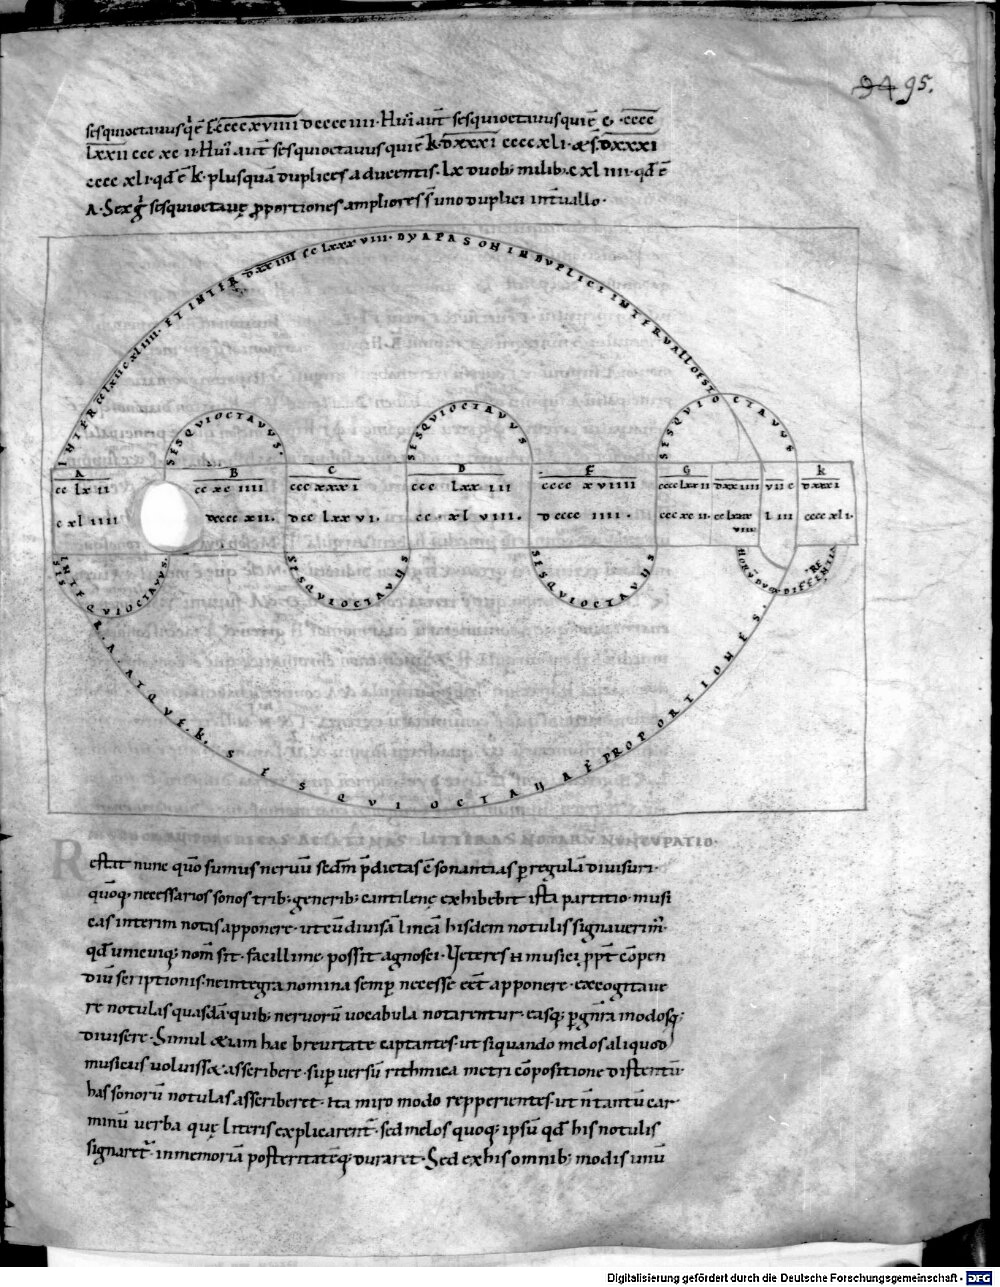 94 95.
sesquioctauusq;ē c̅c̅c̅c̅x̅v̅i̅i̅i̅i̅ dcccc iiii · Hui' aūt sesquioctauus qui ē G · c̅c̅c̅c̅
l̅x̅x̅i̅i̅ ccc xc ii · Hui' aūt sesquioctauus qui ē k · d̅x̅x̅x̅i̅ cccc xli · & s̄ · d̅x̅x̅x̅i̅
cccc xli · qd̄ ē k · plusquā duplices a ducentis · lx duob; milib; c xl iiii · qd̄ ē
A · Sex g̊ sesquioctauę p̱portiones ampliores s̄ uno duplici int̄uallo ·
INTER cc lxii c xl iiii · ET INTER dxx iiii cc lxxx viii · DYAPASON IN DVPLICI INTERVALLO EST
SESQVIOCTAVVS ·
SESQVIOCTAVVS
SESQVIOCTAVVS
A B C D F G k
cc lxii
cc xc iiii
ccc xxxi
ccc lxx iii
cccc xviiii
cccc lxx ii
dxx iiii
vii c
dxxxi
c xl iiii
dcccc xii ·
dcc lxx vi ·
cc · xl viii ·
d cccc iiii ·
ccc xc ii ·
cc lxxx viii
l iii
cccc xli ·
SESQVIOCTAVVS ·
SESQVIOCTAVVS
SESQVIOCTAVVS
HORV̄ DVOR̄ DIFFERENTIA
INTER · A · ATQVE · k · SESQVIOCTAUAE PROPORTIONES ·
NOTARV̄ NVNCVPATIO ·
Restit nunc quō sumus neruū sed̄m p̄dictas c̄sonantias p̱ regulā diuisuri ·
quōq; necessarios sonos trib; generib; cantilenę exhibebit ista partitio · musi
cas interim notas apponere · ut cū diuisā lineā hisdem notulis signauerim' ·
qd̄ unicuiq; nom̄ sit · facillime possit agnosci · Veteres n̄ musici p̱pt̄ cōpen
diū scriptionis · ne integra nomina semp̱ necesse eēt apponere · excogitaue
re notulas quasdā · quib; neruorū uocabula notarentur · easq; p̱ gn̄ra modosq;
diuisere · Simul &iam hac breuitate captantes · ut si quando melos aliquod
musicus uoluiss& asscribere · sup̱ uersū rithmica metri cōpositione distentū ·
has sonorū notulas asscriberet · Ita miro modo repperientes · ut n̄ tantū car
minū uerba quę literis explicarent̄ · sed melos quoq; ipsū qd̄ his notulis
signaret̄ · in memoriā posteritatēq; duraret · Sed ex his omnib; modis unū
Digitalisierung gefördert durch die Deutsche Forschungsgemeinschaft - DFG